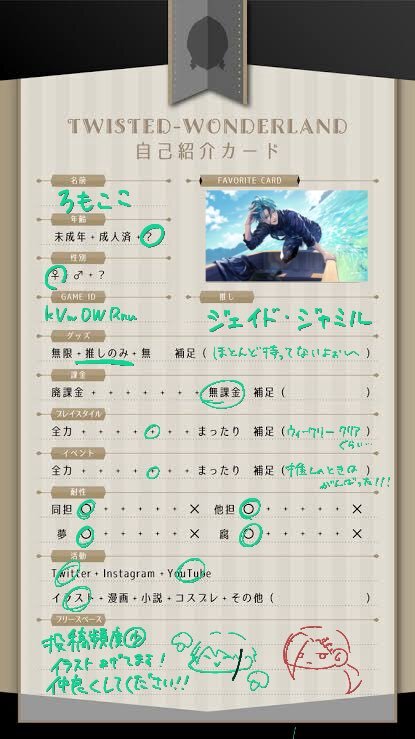 TWISTED-WONDERLAND
自己紹介カード
名前
ろもここ
FAVORITE CARD
年齢
未成年・成人済・?
性別
♀・♂・?
GAME ID
推し
ジェイド・ジャミル
グッズ
無限・推しのみ・無 補足(ほとんど持ってないよぉ~)
課金
廃課金・・・・・・・無課金 補足( )
プレイスタイル
全力・・・・・・・まったり 補足(ウィークリークリア
ぐらい…)
イベント
全力・・・・・・・まったり 補足(推しのときは
がんばった!!!)
耐性
同担 ○・・・・・× 他担 ○・・・・・×
夢 ○・・・・・× 腐 ○・・・・・×
活動
Twitter・Instagram・YouTube
イラスト・漫画・小説・コスプレ・その他( )
フリースペース
投稿頻度
イラストあげてます!
仲良くしてください!!